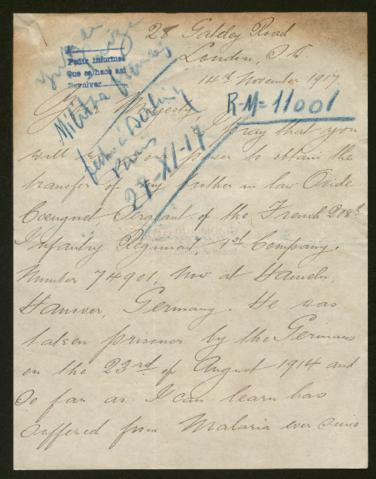 28 Gateley Road
London, S.W.
14th November 1917
Pedir informes
que se hace así
Devolver
Militar francés
Berlin
Paris
27-XI-17
R-M=11001
Your Majesty,
I pray that you
will in your power to obtain the
transfer of my brother in law Ovide
Sergeant of the French 208th
Infantry Regiment 1st Company.
Number 74901, now at Hameln,
Hanover, Germany. He was
taken prisoner by the Germans
on the 23rd of August 1914 and
so far as I can learn has
suffered from Malaria ever since